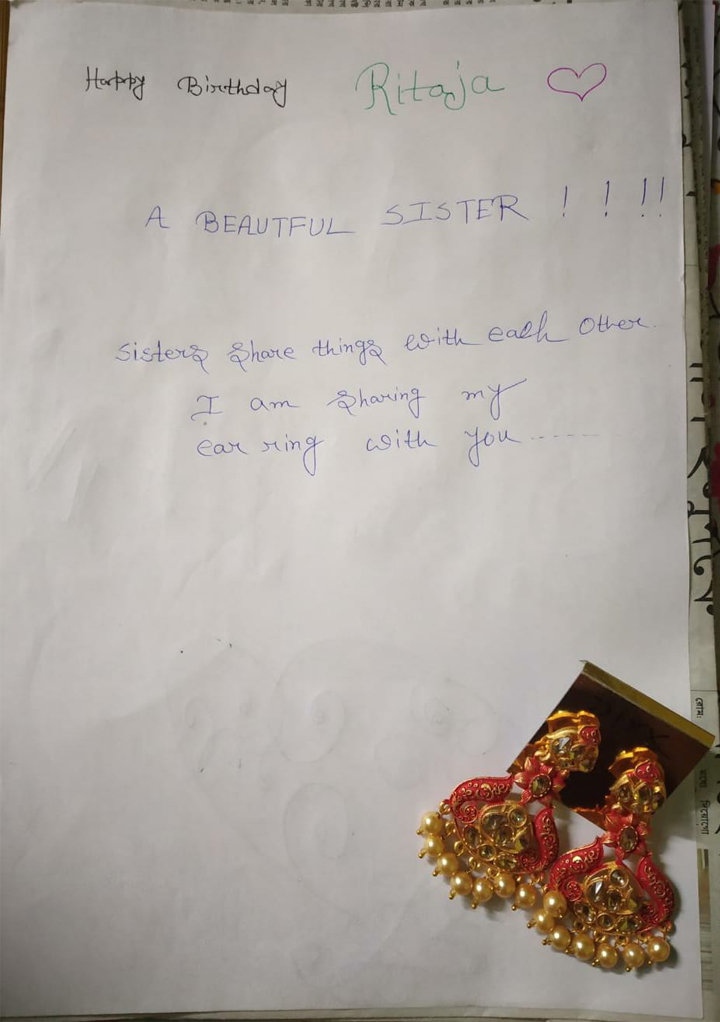 Happy Birthday Ritaja
A BEAUTFUL SISTER ! ! !!
Sisters share things with each other.
I am sharing my
ear ring with you......